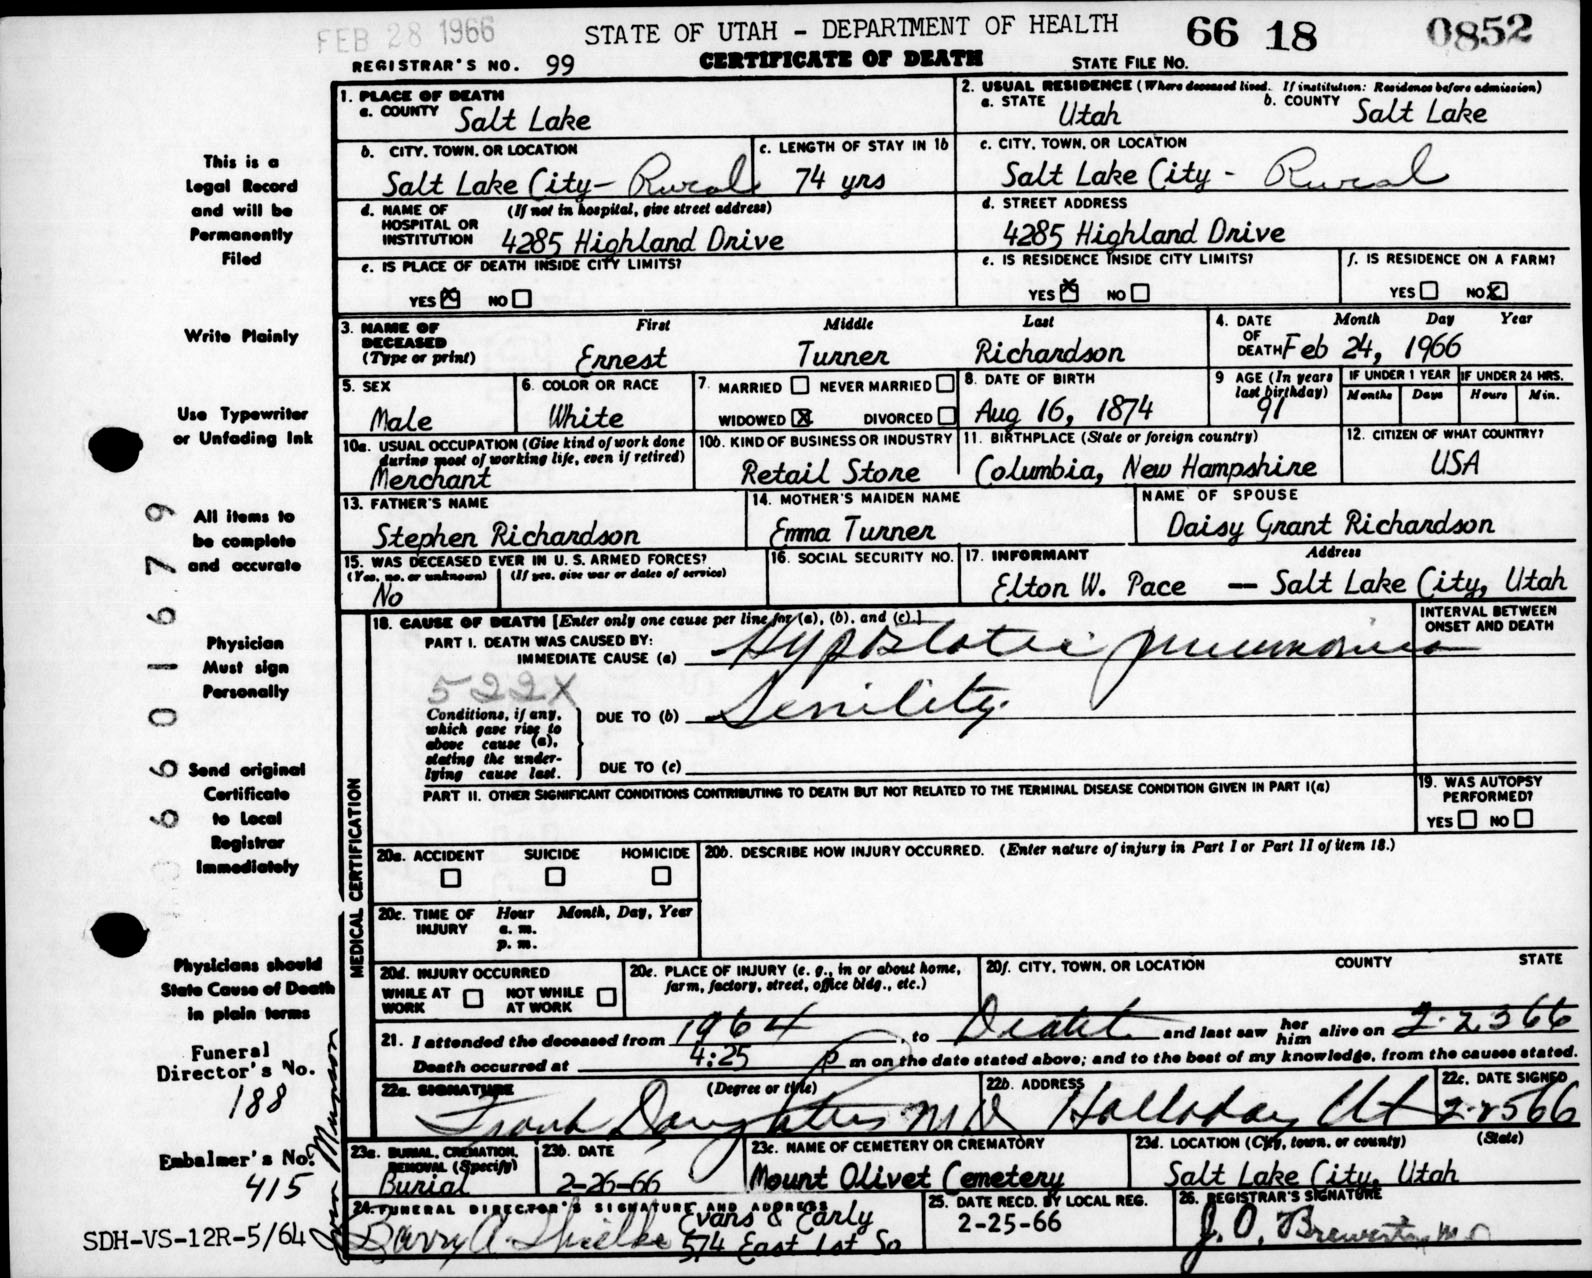 FEB 28 1966
STATE OF UTAH - DEPARTMENT OF HEALTH
66 18 0852
REGISTRAR'S NO. 99
CERTIFICATE OF DEATH
STATE FILE NO.
1. PLACE OF DEATH
a. COUNTY Salt Lake
2. USUAL RESIDENCE (Where deceased lived. If institution: Residence before admission)
a. STATE Utah b. COUNTY Salt Lake
b. CITY, TOWN, OR LOCATION
Salt Lake City - Rural
c. LENGTH OF STAY IN 1b
74 yrs
c. CITY, TOWN, OR LOCATION
Salt Lake City - Rural
d. NAME OF HOSPITAL OR INSTITUTION (If not in hospital, give street address)
4285 Highland Drive
d. STREET ADDRESS
4285 Highland Drive
e. IS PLACE OF DEATH INSIDE CITY LIMITS?
YES NO
e. IS RESIDENCE INSIDE CITY LIMITS?
YES NO
f. IS RESIDENCE ON A FARM?
YES NO
3. NAME OF DECEASED (Type or print)
First Middle Last
Ernest Turner Richardson
4. DATE OF DEATH Month Day Year
Feb 24, 1966
5. SEX
Male
6. COLOR OR RACE
White
7. MARRIED NEVER MARRIED
WIDOWED DIVORCED
8. DATE OF BIRTH
Aug 16, 1874
9 AGE (In years last birthday)
91
IF UNDER 1 YEAR
Months Days
IF UNDER 24 HRS.
Hours Min.
10a. USUAL OCCUPATION (Give kind of work done during most of working life, even if retired)
Merchant
10b. KIND OF BUSINESS OR INDUSTRY
Retail Store
11. BIRTHPLACE (State or foreign country)
Columbia, New Hampshire
12. CITIZEN OF WHAT COUNTRY?
USA
13. FATHER'S NAME
Stephen Richardson
14. MOTHER'S MAIDEN NAME
Emma Turner
NAME OF SPOUSE
Daisy Grant Richardson
15. WAS DECEASED EVER IN U. S. ARMED FORCES?
(Yes, no, or unknown) (If yes, give war or dates of service)
No
16. SOCIAL SECURITY NO.
17. INFORMANT Address
Elton W. Pace — Salt Lake City, Utah
MEDICAL CERTIFICATION
18. CAUSE OF DEATH [Enter only one cause per line for (a), (b), and (c).]
INTERVAL BETWEEN ONSET AND DEATH
PART I. DEATH WAS CAUSED BY:
IMMEDIATE CAUSE (a) Hypostatic pneumonia
522X
Conditions, if any, which gave rise to above cause (a), stating the underlying cause last.
DUE TO (b) Senility.
DUE TO (c)
PART II. OTHER SIGNIFICANT CONDITIONS CONTRIBUTING TO DEATH BUT NOT RELATED TO THE TERMINAL DISEASE CONDITION GIVEN IN PART I(a)
19. WAS AUTOPSY PERFORMED?
YES NO
20a. ACCIDENT SUICIDE HOMICIDE
20b. DESCRIBE HOW INJURY OCCURRED. (Enter nature of injury in Part I or Part II of item 18.)
20c. TIME OF INJURY Hour Month, Day, Year
a. m.
p. m.
20d. INJURY OCCURRED
WHILE AT WORK NOT WHILE AT WORK
20e. PLACE OF INJURY (e. g., in or about home, farm, factory, street, office bldg., etc.)
20f. CITY, TOWN, OR LOCATION COUNTY STATE
21. I attended the deceased from 1964 to Death and last saw her him alive on 2-23 66
Death occurred at 4:25 p m on the date stated above; and to the best of my knowledge, from the causes stated.
22a. SIGNATURE (Degree or title)
Frank M.D.
22b. ADDRESS
Holladay Ut
22c. DATE SIGNED
2-25 66
23a. BURIAL, CREMATION, REMOVAL (Specify)
Burial
23b. DATE
2-26-66
23c. NAME OF CEMETERY OR CREMATORY
Mount Olivet Cemetery
23d. LOCATION (City, town, or county) (State)
Salt Lake City, Utah
24. FUNERAL DIRECTOR'S SIGNATURE AND ADDRESS
Evans & Early
574 East 1st So
25. DATE RECD. BY LOCAL REG.
2-25-66
26. REGISTRAR'S SIGNATURE
J. O. M.D.
This is a
Legal Record
and will be
Permanently
Filed
Write Plainly
Use Typewriter
or Unfading Ink
All items to
be complete
and accurate
Physician
Must sign
Personally
Send original
Certificate
to Local
Registrar
Immediately
Physicians should
State Cause of Death
in plain terms
Funeral
Director's No.
188
Embalmer's No.
415
SDH-VS-12R-5/64